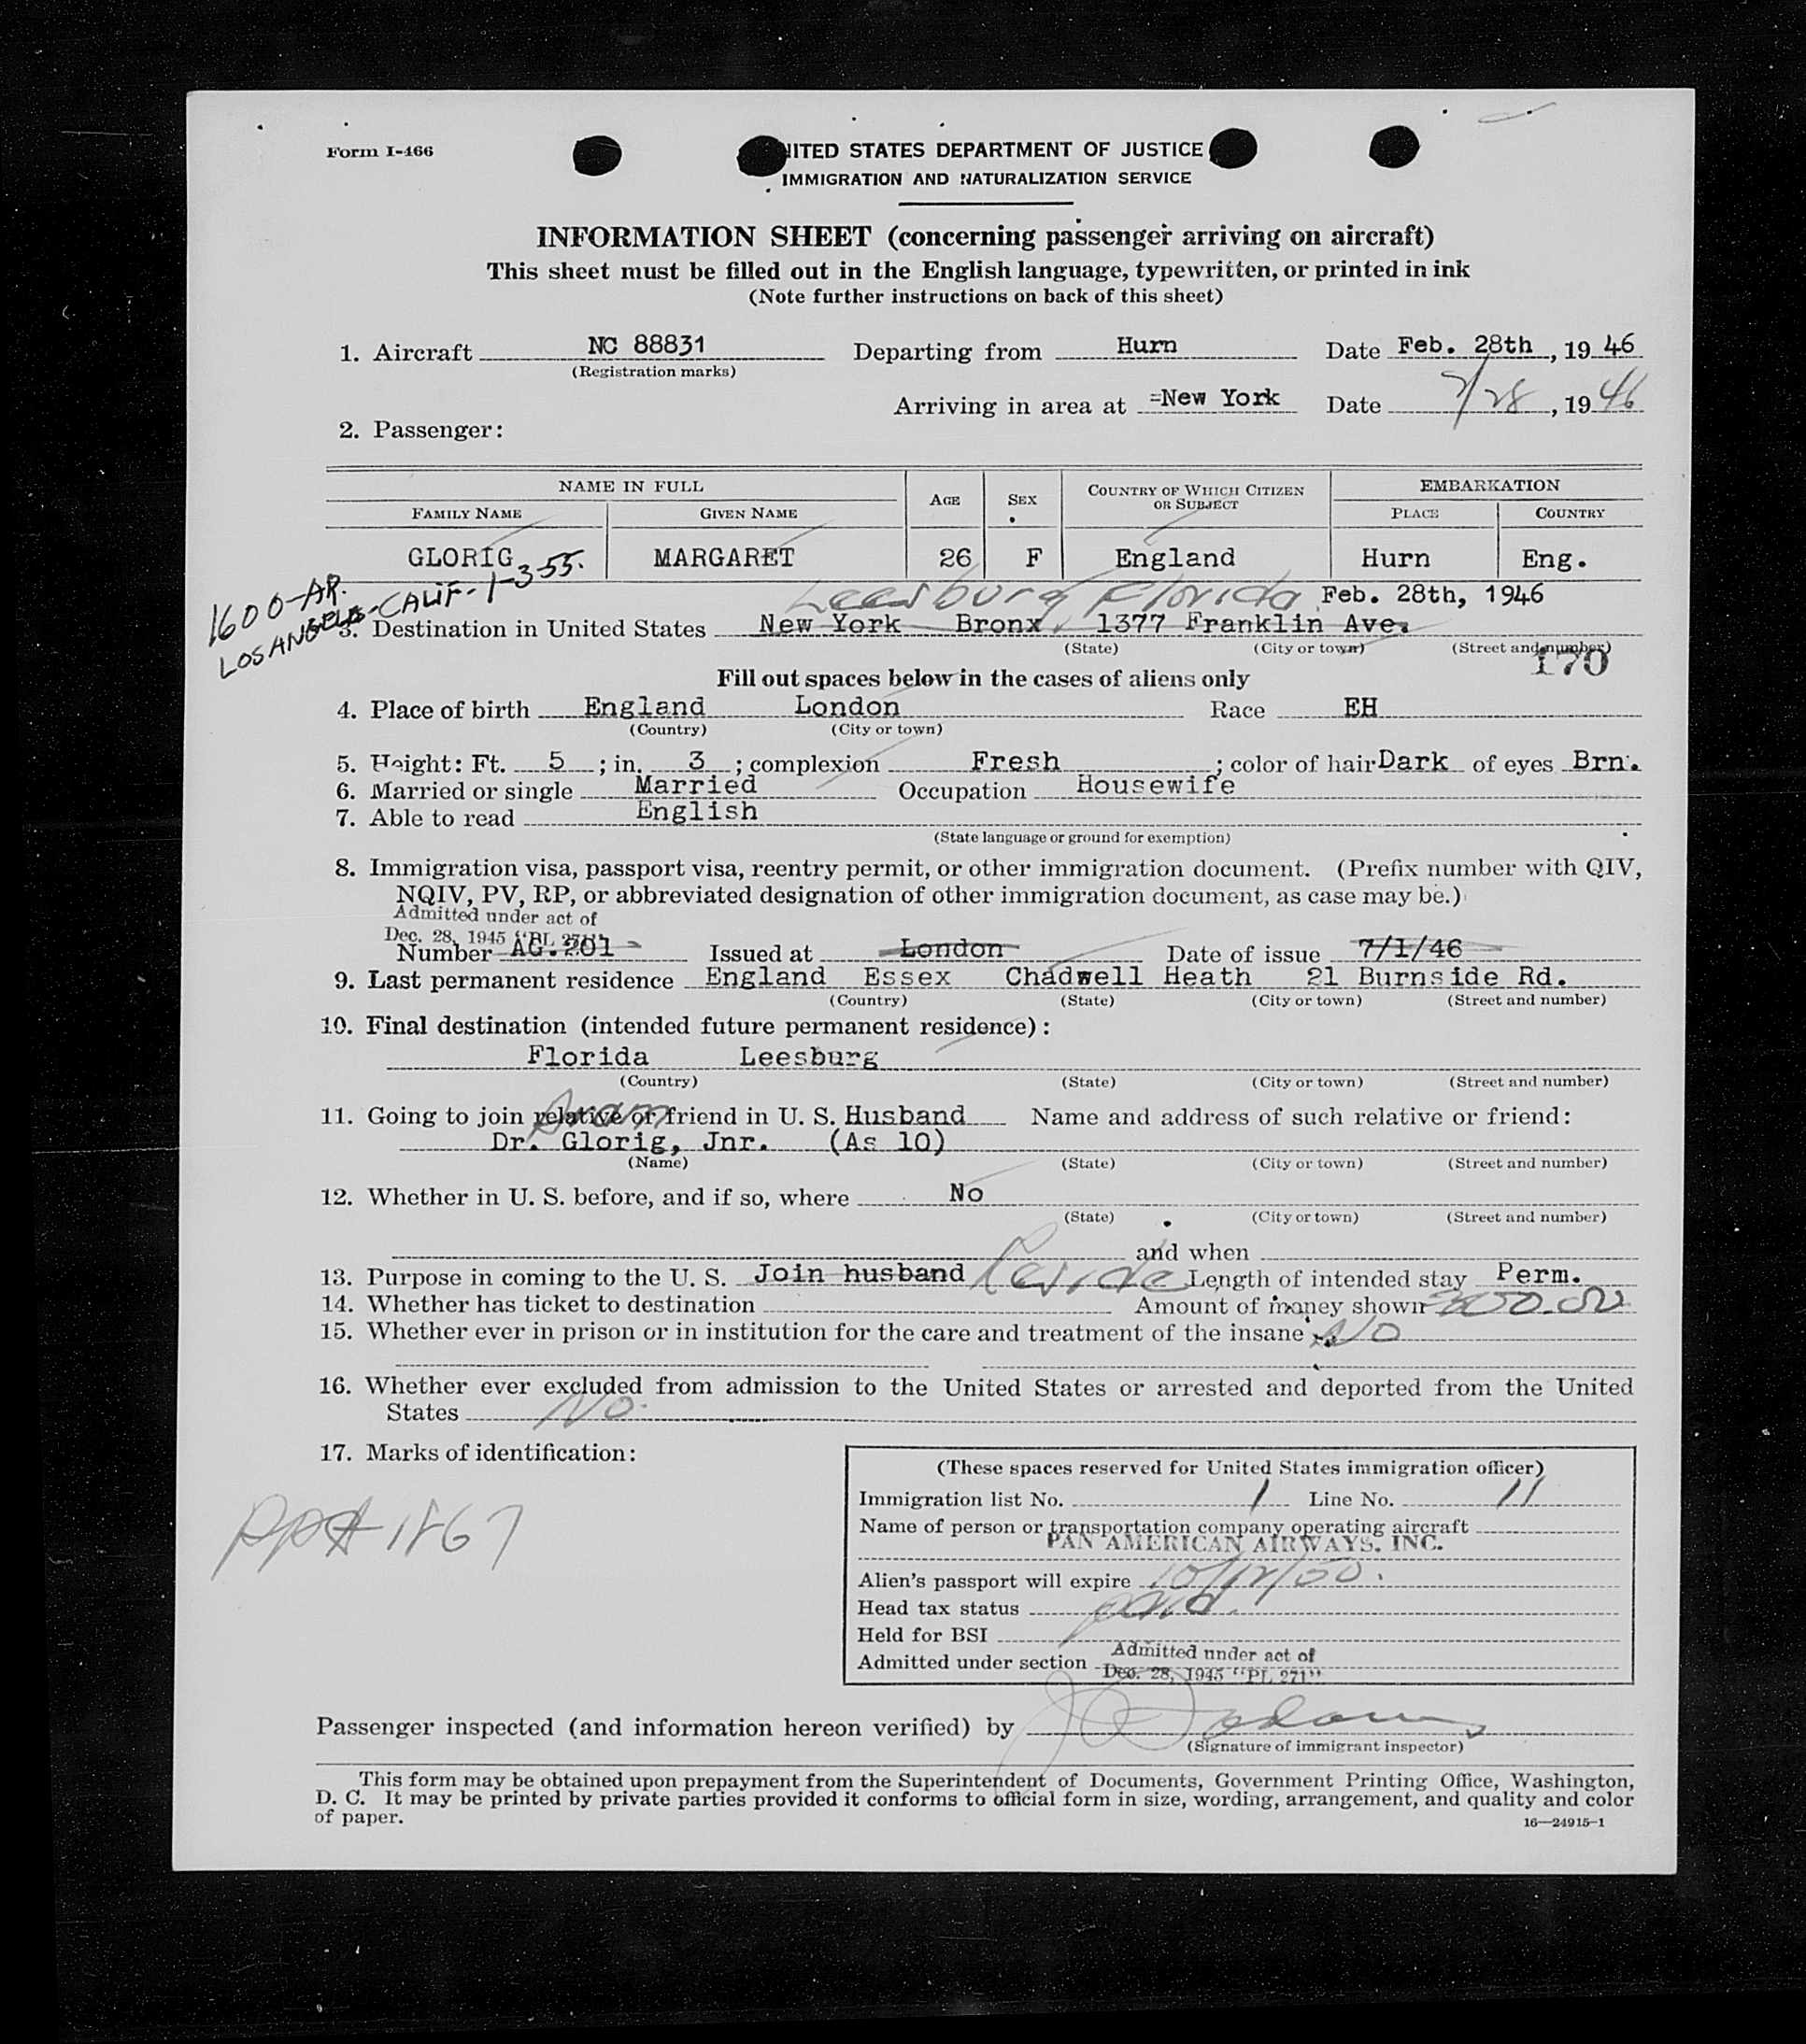 Form I-466
NITED STATES DEPARTMENT OF JUSTICE
IMMIGRATION AND NATURALIZATION SERVICE
INFORMATION SHEET (concerning passenger arriving on aircraft)
This sheet must be filled out in the English language, typewritten, or printed in ink
(Note further instructions on back of this sheet)
1. Aircraft NC 88831 Departing from Hurn Date Feb. 28th, 1946
(Registration marks)
Arriving in area at =New York Date 2/28, 1946
2. Passenger:
NAME IN FULL AGE SEX COUNTRY OF WHICH CITIZEN OR SUBJECT EMBARKATION
FAMILY NAME GIVEN NAME PLACE COUNTRY
GLORIG MARGARET 26 F England Hurn Eng.
1600-AR.
LOS ANGELES-CALIF-1-3-55.
Leesburg Florida Feb. 28th, 1946
3. Destination in United States New York Bronx 1377 Franklin Ave.
(State) (City or town) (Street and number)
170
Fill out spaces below in the cases of aliens only
4. Place of birth England London Race EH
(Country) (City or town)
5. Height: Ft. 5; in. 3; complexion Fresh; color of hair Dark of eyes Brn.
6. Married or single Married Occupation Housewife
7. Able to read English
(State language or ground for exemption)
8. Immigration visa, passport visa, reentry permit, or other immigration document. (Prefix number with QIV,
NQIV, PV, RP, or abbreviated designation of other immigration document, as case may be.)
Admitted under act of
Dec. 28, 1945 "PL 271"
Number AG.201 Issued at London Date of issue 7/1/46
9. Last permanent residence England Essex Chadwell Heath 21 Burnside Rd.
(Country) (State) (City or town) (Street and number)
10. Final destination (intended future permanent residence):
Florida Leesburg
(Country) (State) (City or town) (Street and number)
11. Going to join relative or friend in U. S. Husband Name and address of such relative or friend:
Aram
Dr. Glorig, Jnr. (As 10)
(Name) (State) (City or town) (Street and number)
12. Whether in U. S. before, and if so, where No
(State) (City or town) (Street and number)
and when
13. Purpose in coming to the U. S. Join husband Reside Length of intended stay Perm.
14. Whether has ticket to destination Amount of money shown
15. Whether ever in prison or in institution for the care and treatment of the insane No
16. Whether ever excluded from admission to the United States or arrested and deported from the United
States No.
17. Marks of identification:
PP# 1867
(These spaces reserved for United States immigration officer)
Immigration list No. 1 Line No. 11
Name of person or transportation company operating aircraft
PAN AMERICAN AIRWAYS, INC.
Alien's passport will expire 10/12/50.
Head tax status paid.
Held for BSI
Admitted under section Admitted under act of
Dec. 28, 1945 "PL 271"
Passenger inspected (and information hereon verified) by
(Signature of immigrant inspector)
This form may be obtained upon prepayment from the Superintendent of Documents, Government Printing Office, Washington,
D. C. It may be printed by private parties provided it conforms to official form in size, wording, arrangement, and quality and color
of paper.
16—24915-1